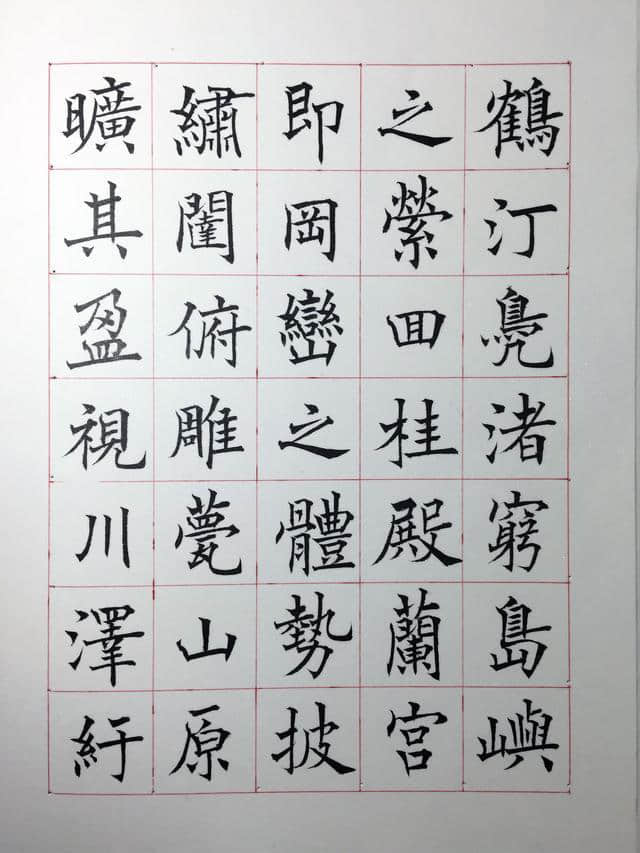 鶴汀鳧渚窮島嶼
之縈囬桂殿蘭宮
即岡巒之體勢披
繡闥俯雕甍山原
曠其盈視川澤紆